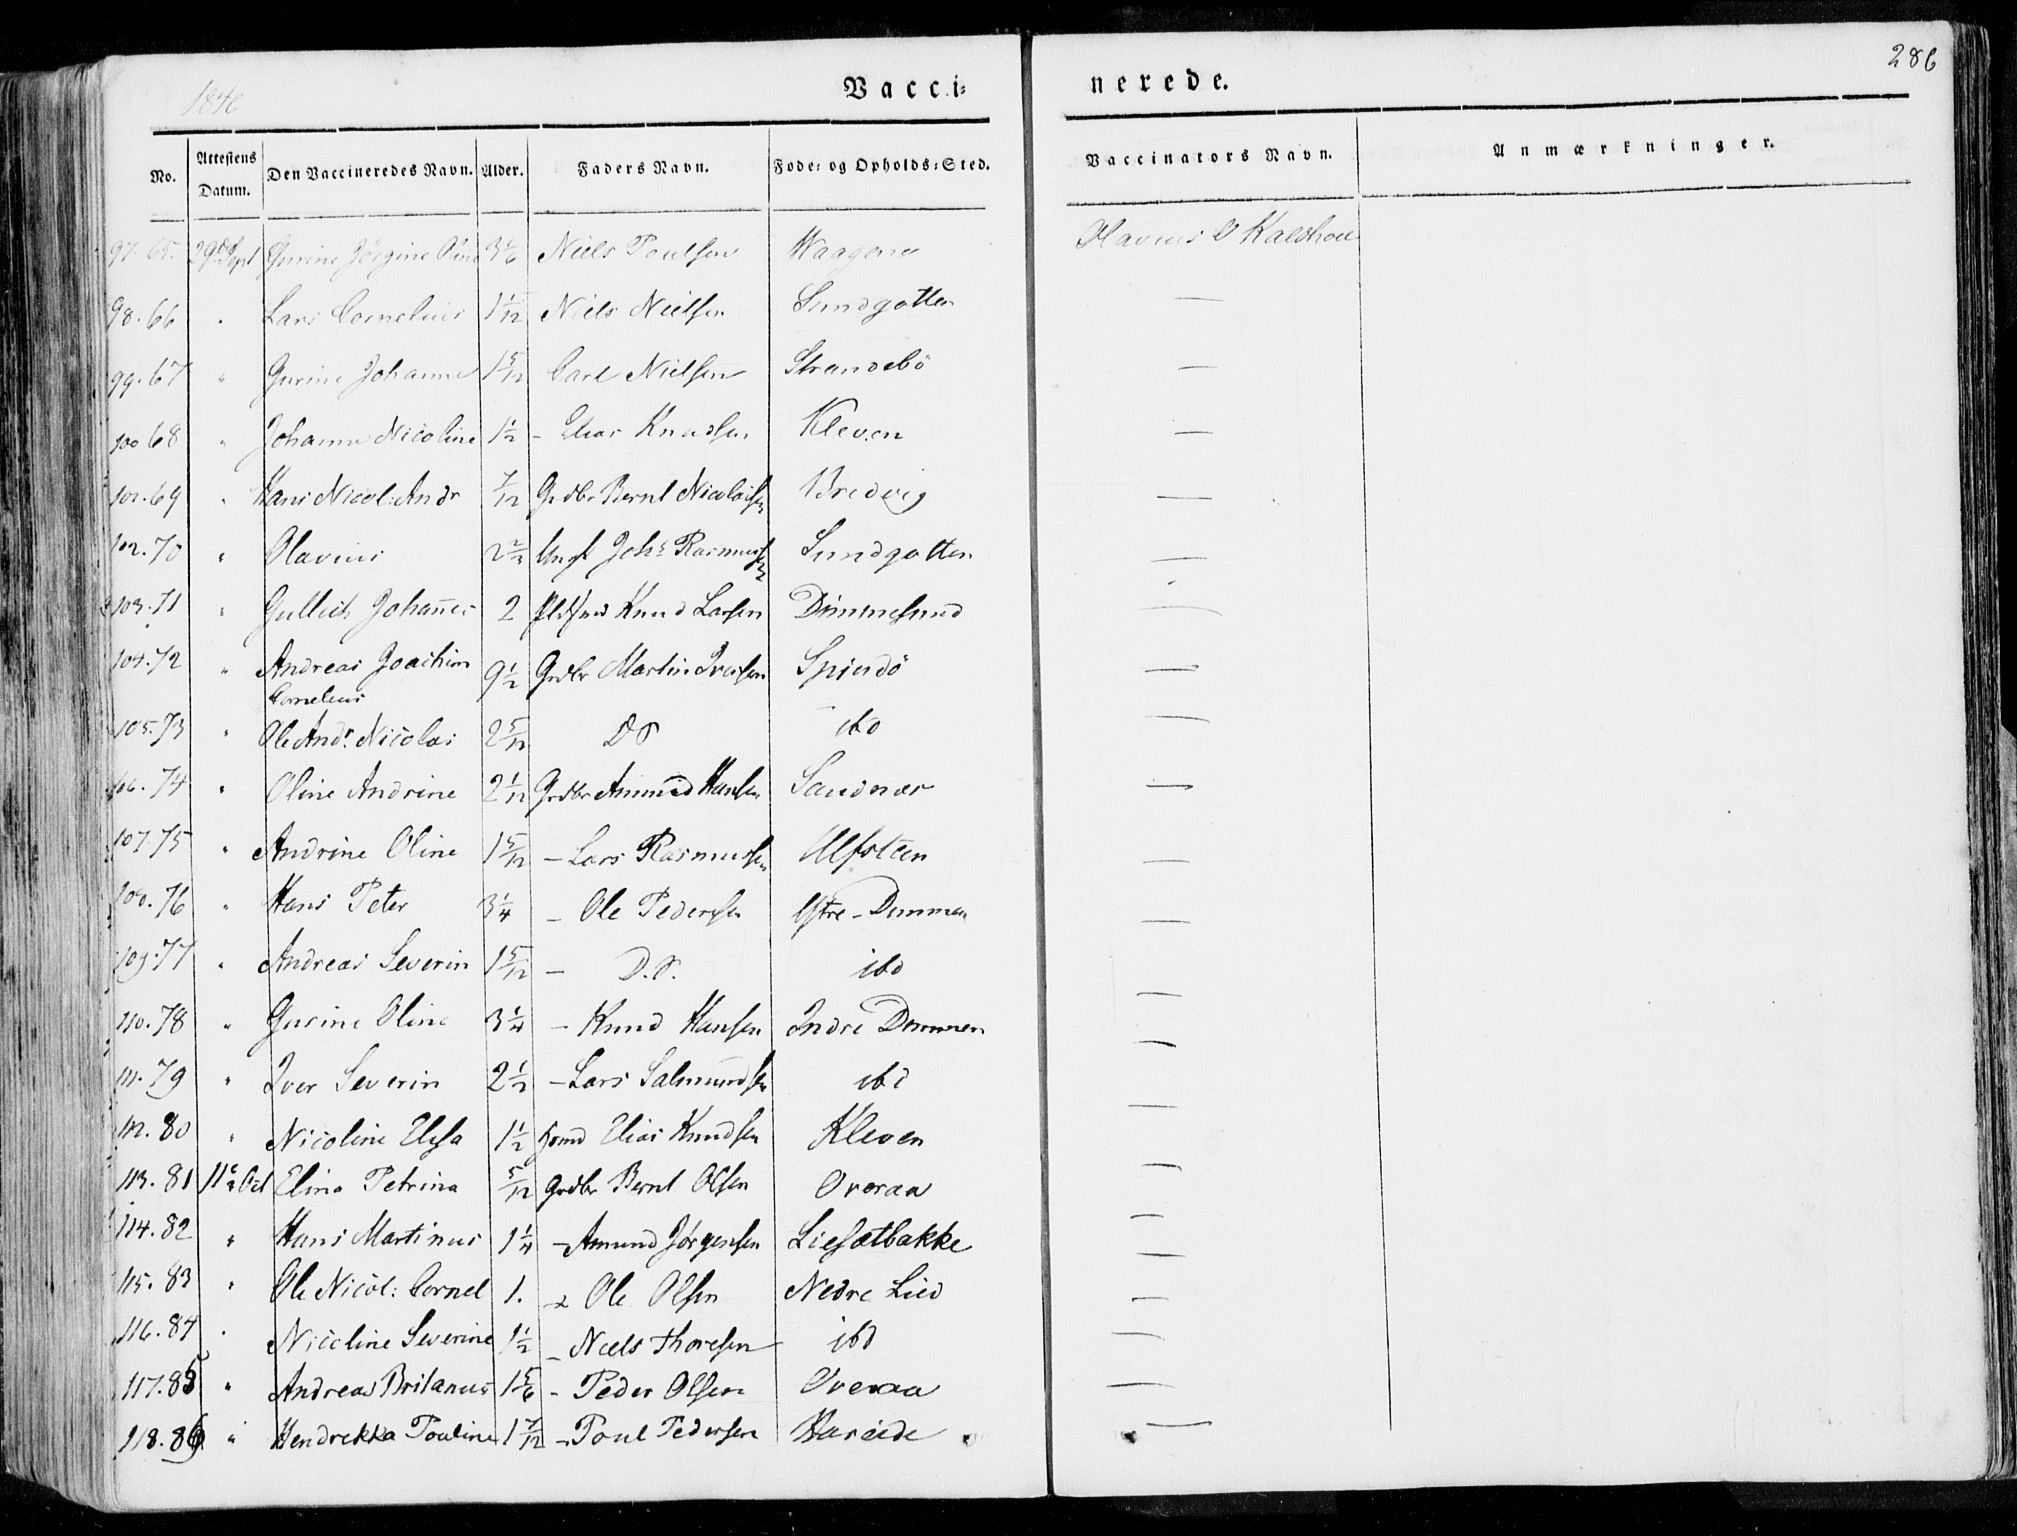 286
1846
Vacci=
nerede.
No. Attestens Datum. Den Vaccineredes Navn. Alder. Faders Navn. Føde= og Opholds=Sted. Vaccinators Navn. Anmærkninger.
97. 65. 29 Sept Gurine Jörgine Oline 3 Niels Poulsen Olavus O
98. 66 " Lars Cornelius 1 1/12 Niels Nielsen Sundgotten —
99. 67 " Gurine Johanne 1 5/12 Carl Nielsen Strandebö —
100 68 " Johanne Nicoline 1 1/2 – Elias Knudsen Kleven —
101. 69 " Hans Nicol: Andr 7/12 Grdbr Bernt Nicolaisen Bredvig —
102. 70 " Olavius 2 Johs Rasmussen Sundgotten —
103. 71 " Johañes 2 Knud Larsen Dimmesund —
104. 72 " Andreas Joachim Cornelius 9 1/2 Grdbr Martin Iversen —
105. 73 " Ole Andr. Nicolai 2 5/12 Do ibd —
106. 74 " Oline Andrine 2 1/12 Grdbr Ammund Hansen Sandnær —
107. 75 " Andrine Oline 1 5/12 – Lars Rasmussen Ulfsteen —
108. 76 " Hans Peter 3 1/4 – Ole Pedersen Ystre – Dimmen —
109. 77 " Andreas Severin 1 5/12 – D.o. ibd —
110. 78 " Gurine Oline 3 1/4 – Knud Hansen Indre Dimmen —
111. 79 " Iver Severin 2 1/2 – Lars Salmundsen ibd —
112. 80 " Nicoline Elisa 1 1/2 Elias Knudsen Kleven —
113. 81 11 Oct Elina Petrina 5/12 Grdbr Bernt Olsen Overaa —
114. 82 " Hans Martinus 1 1/4 – Amund Jørgensen Liesætbakke —
115. 83 " Ole Nicol: Cornel 1. – Ole Olsen Nedre Lied —
116. 84 " Nicoline Severine 1 1/2 – Niels Thoresen ibd —
117. 85 " Andreas Britanus 1 5/6 – Peder Olsen Overaa —
118. 86 " Hendrekka Pouline 1 7/12 – Poul Pedersen Hareide —